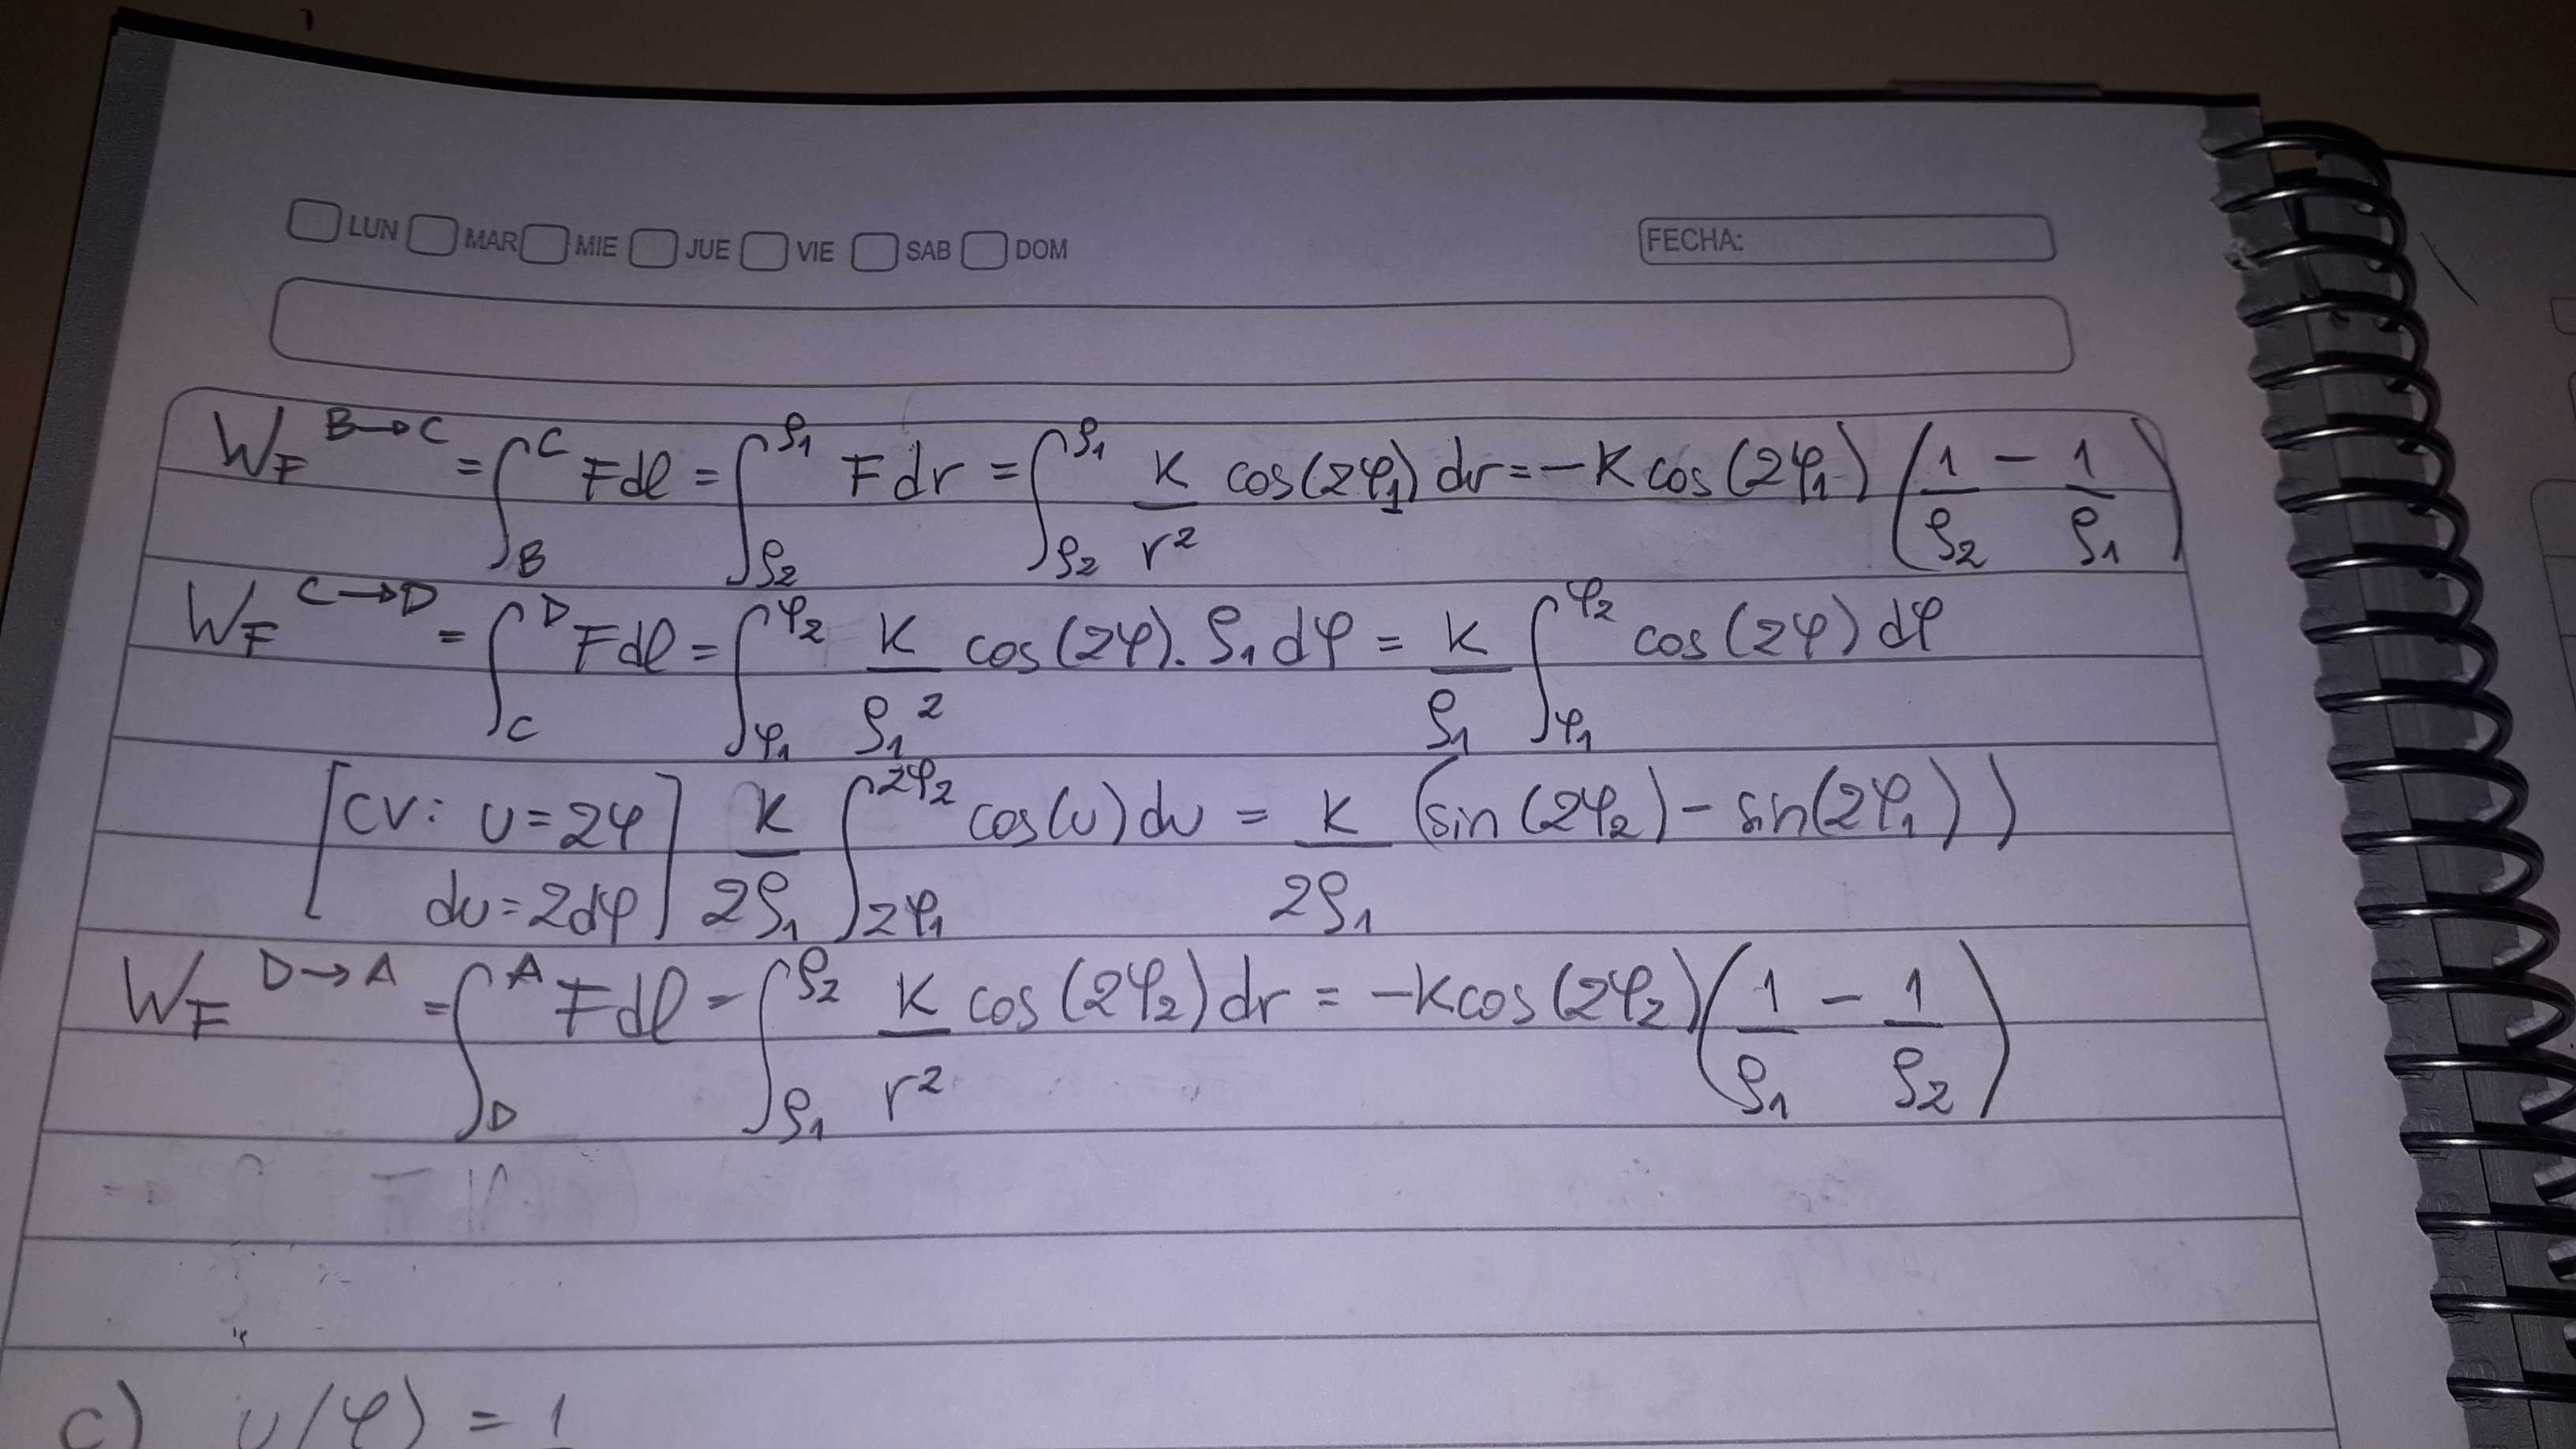 LUN MAR MIE JUE VIE SAB DOM FECHA:
W_F^{B→C} = ∫_B^C Fdl = ∫_{ρ₂}^{ρ₁} F dr = ∫_{ρ₂}^{ρ₁} K/r² cos(2φ₁) dr = -K cos(2φ₁) (1/ρ₂ - 1/ρ₁)
W_F^{C→D} = ∫_C^D Fdl = ∫_{φ₁}^{φ₂} K/ρ₁² cos(2φ). ρ₁ dφ = K/ρ₁ ∫_{φ₁}^{φ₂} cos(2φ) dφ
[CV: u=2φ du=2dφ] K/2ρ₁ ∫_{2φ₁}^{2φ₂} cos(u) du = K/2ρ₁ (sin(2φ₂) - sin(2φ₁))
W_F^{D→A} = ∫_D^A Fdl = ∫_{ρ₁}^{ρ₂} K/r² cos(2φ₂) dr = -Kcos(2φ₂) (1/ρ₁ - 1/ρ₂)
c) u(φ) = 1